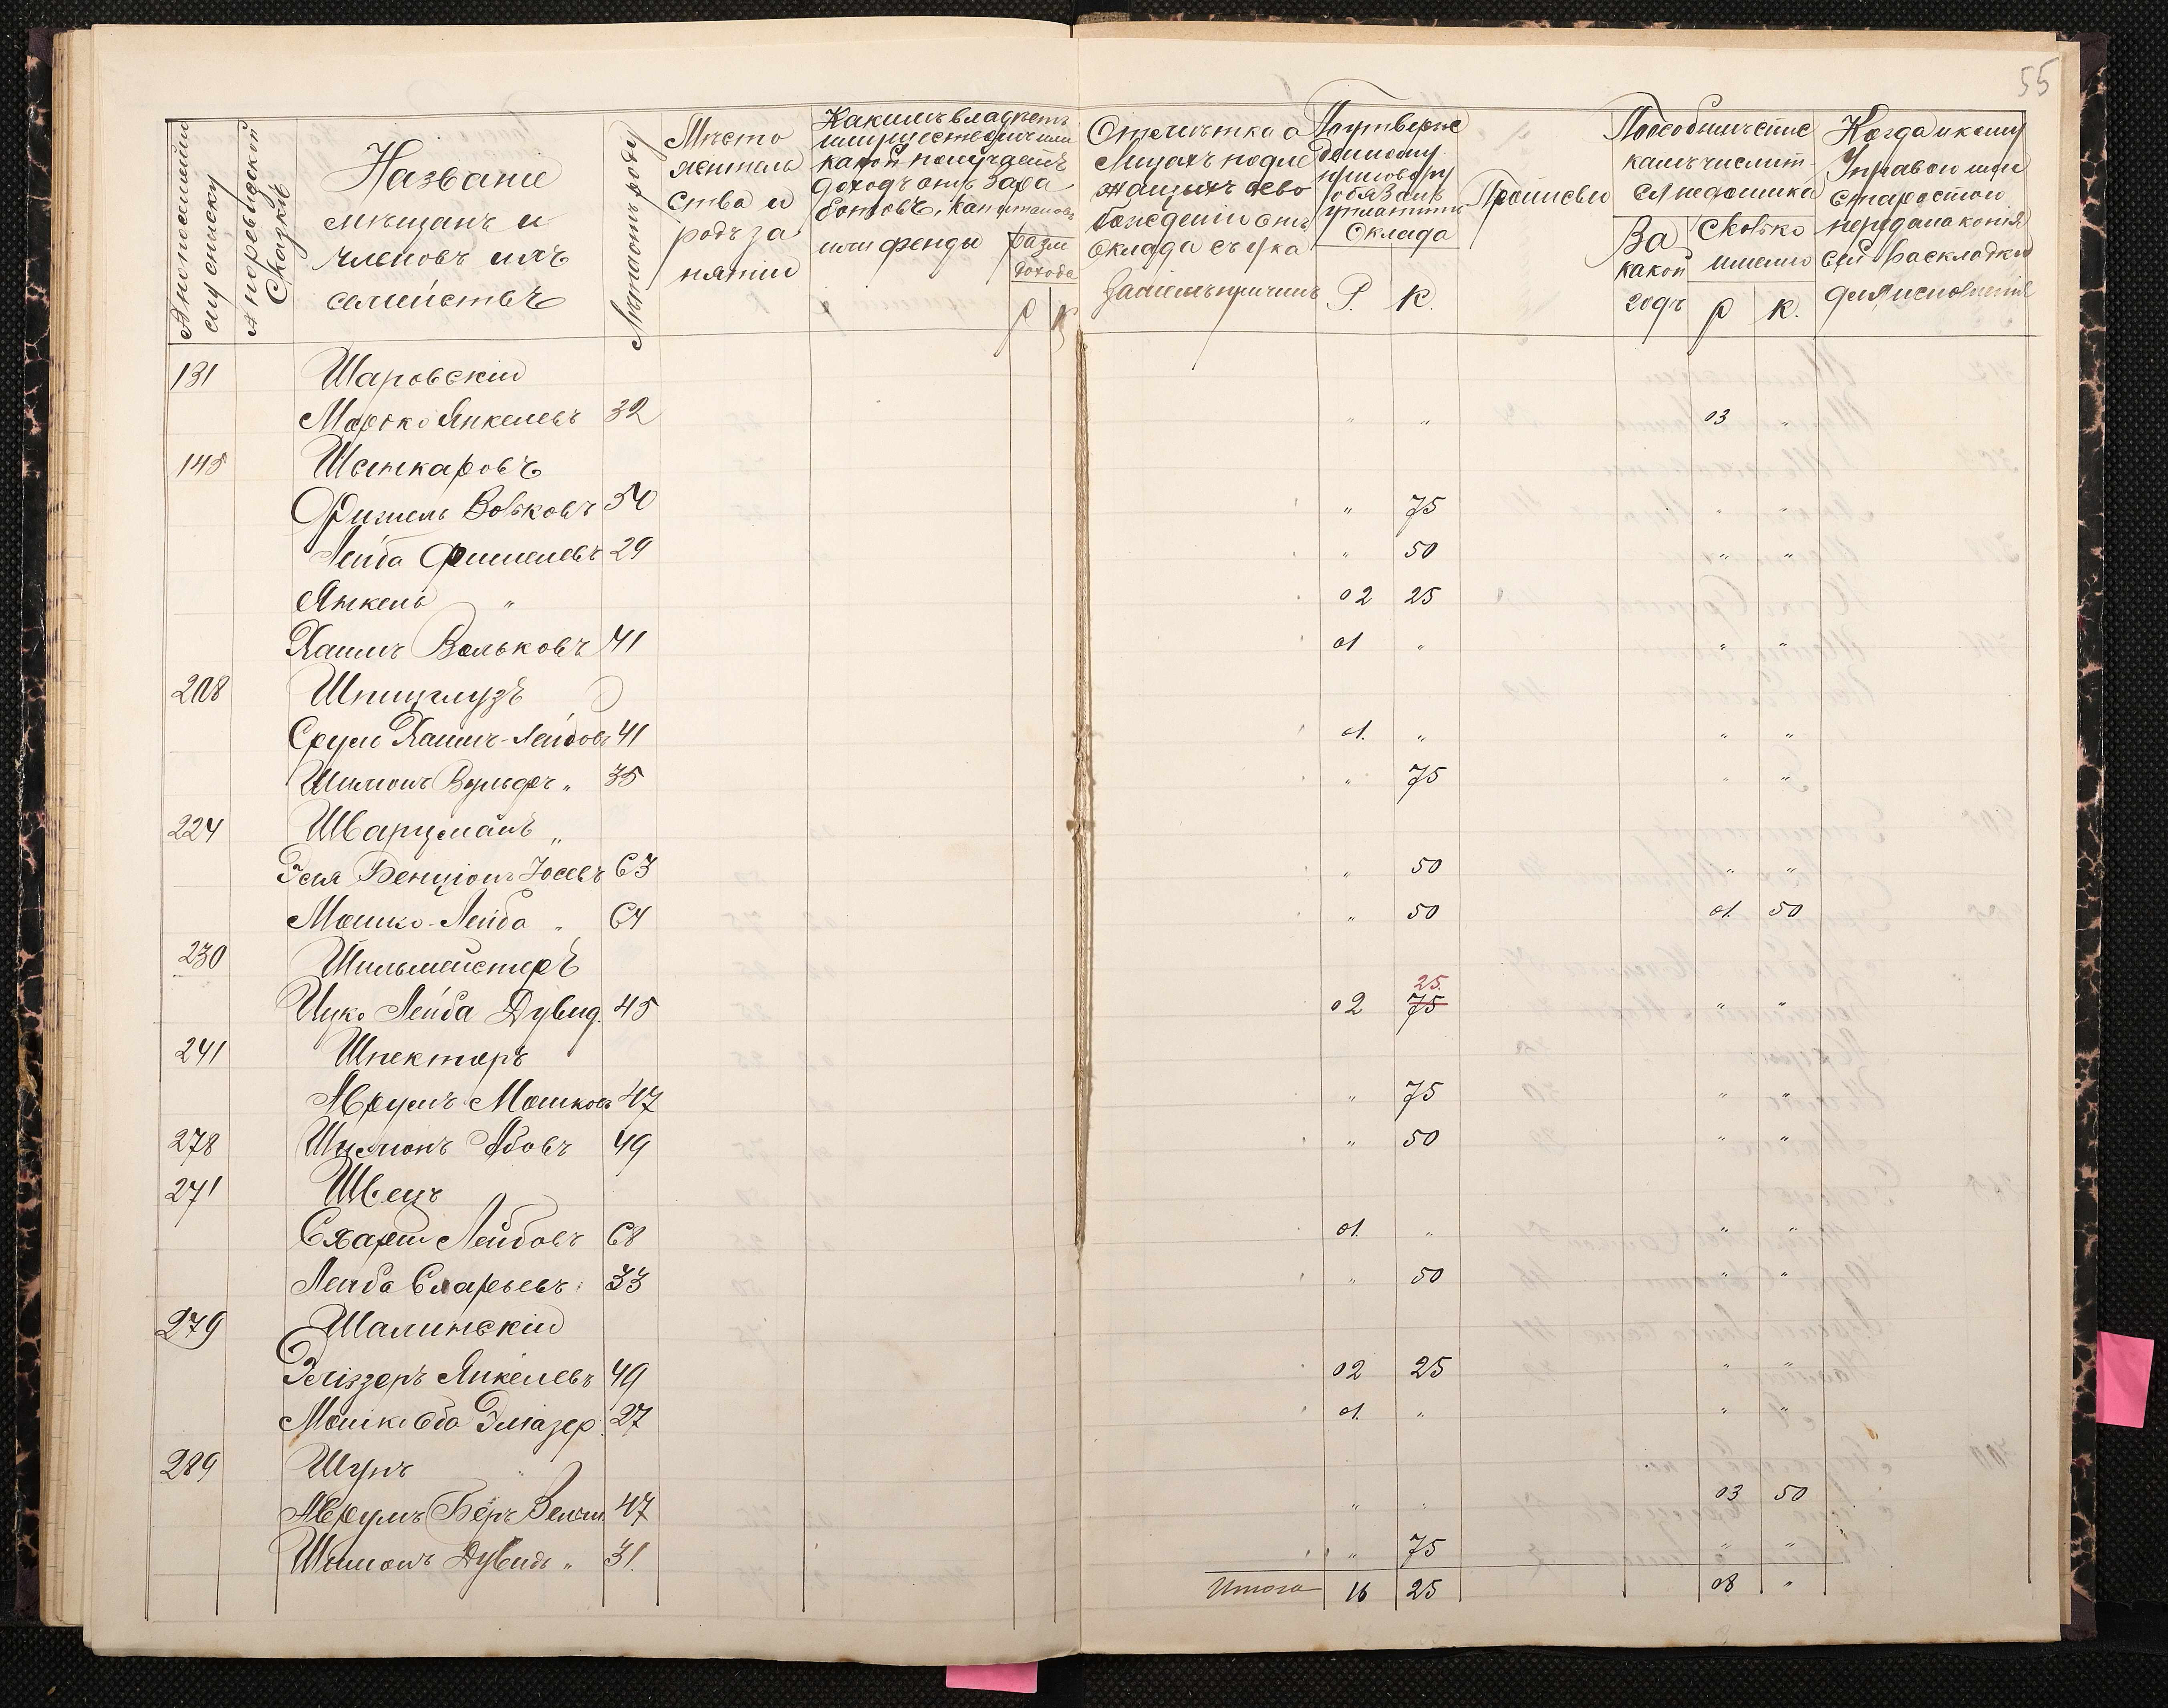 55
№ по посемейному списку
№ по ревизской сказкѣ
Названіе
мѣщанъ и
членовъ ихъ
семействъ
Лѣта отъ роду
Мѣсто
житель
ства и
родъ за
нятій
Какимъ владѣетъ
имуществомъ или
какой получаетъ
доходъ отъ зара
ботковъ, капиталовъ
или фенды
разм
дохода
Р К
Отмѣтка о
Лицахъ подле
жащихъ осво
божденію отъ
Оклада съ ука
заніемъ причинъ
По утверж
денному
приговору
обязанъ
уплатить
Оклада
Р. К.
Прописью
По особымъ спис
камъ числит
ся недоимка
За
какой
годъ
Сколько
именно
р К.
Когда и кому
Управою или
старостою
передана копія
сей Раскладки
для исполненія
131 Шаровскій
Мошко Янкелевъ 32 " " 03 "
145 Шенкаровъ
Фишель Вольковъ 54 " 75 " "
Лейба Фишелевъ 29 " 50 " "
Янкель " 02 25
Хаимъ Вольковъ 41 01 " " "
208 Шпицглузъ
Сруль Хаимъ-Лейбов 41 01. " " "
Шимонъ Вульфъ " 35 " 75 " "
224 Шварцманъ "
Эля Бенціонъ Іосевъ 63 " 50 " "
Мошко-Лейба " 64 " 50 01. 50
230 Шильмейстеръ
Ицко Лейба Дувид. 45 02 75 25. " "
241 Шпекторъ
Аврумъ Мошков 47 " 75 " "
278 Шимонъ Абовъ 49 " 50 " "
271 Швецъ
Схарія Лейбовъ 68 01. " " "
Лейба Схарьевъ 33 " 50 " "
279 Шалинскій
Эліэзеръ Янкелевъ 49 02 25 " "
Мошко Эліазер. 27 01. " " "
289 Шуръ
Аврумъ Беръ 47 " " 03 50
Шимонъ Дувидъ " 31. " 75 " "
Итого 16 25 08 "